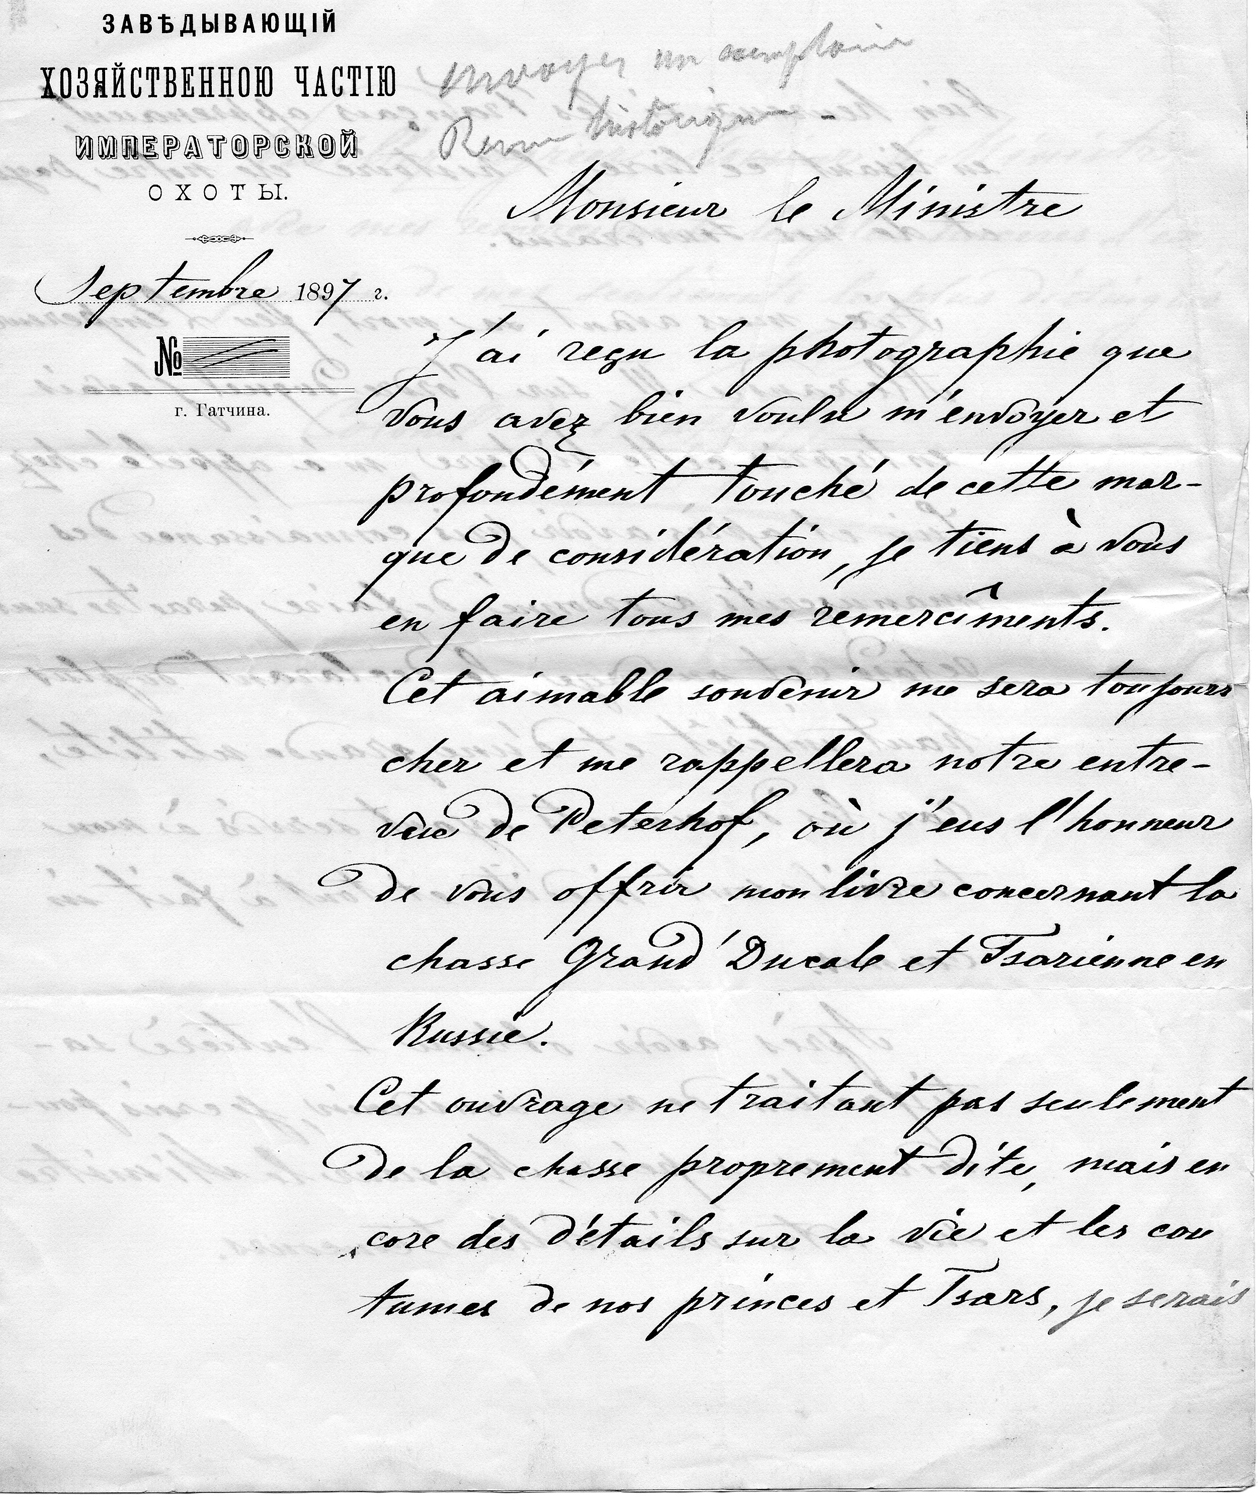 ЗАВѢДЫВАЮЩІЙ
ХОЗЯЙСТВЕННОЮ ЧАСТІЮ
ИМПЕРАТОРСКОЙ
ОХОТЫ.
Septembre 1897 г.
№
г. Гатчина.
envoyer un exemplaire
Revue historique -
Monsieur le Ministre
J'ai reçu la photographie que
vous avez bien voulu m'envoyer et
profondément touché de cette mar-
que de considération, je tiens à vous
en faire tous mes remercîments.
Cet aimable souvenir me sera toujours
cher et me rappellera notre entre-
vue de Peterhof, où j'eus l'honneur
de vous offrir mon livre concernant la
chasse Grand' Ducale et Tsarienne en
Russie.
Cet ouvrage ne traitant pas seulement
de la chasse proprement dite, mais en
core des détails sur la vie et les cou
tumes de nos princes et Tsars, je serais